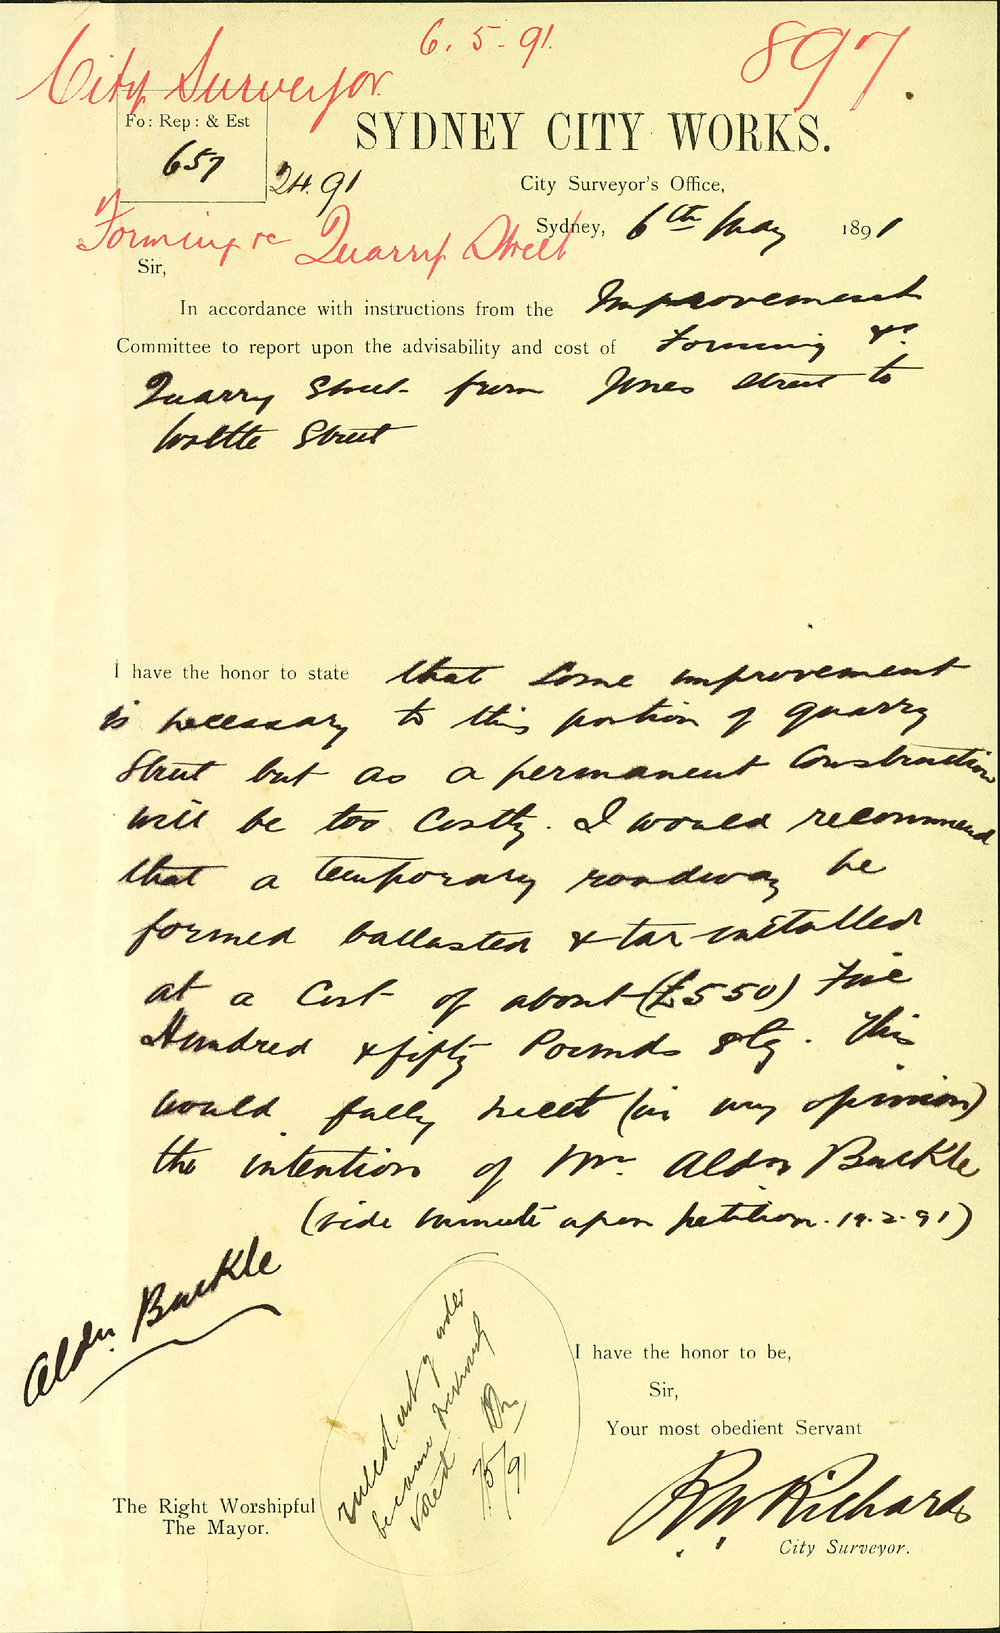 6.5-91.
897
City Surveyor.
Fo: Rep: & Est
657
24.91
SYDNEY CITY WORKS.
City Surveyor's Office,
Sydney, 6th May 1891
Forming &c Quarry Street
Sir,
In accordance with instructions from the Improvement
Committee to report upon the advisability and cost of Forming &c
Quarry Street from Jones Street to
Wattle Street
I have the honor to state that some improvement
is necessary to this portion of Quarry
Street but as a permanent Construction
will be too Costly. I would recommend
that a temporary roadway be
formed ballasted & tar metalled
at a Cost of about (£550) Five
Hundred & fifty Pounds Stg. This
would fully meet (in my opinion)
the intention of Mr. Aldn Buckle
(vide minute upon petition. 19.2.91)
Aldn. Buckle
ruled out of order
because
voted
7/5/91
I have the honor to be,
Sir,
Your most obedient Servant
R W Richards
City Surveyor.
The Right Worshipful
The Mayor.